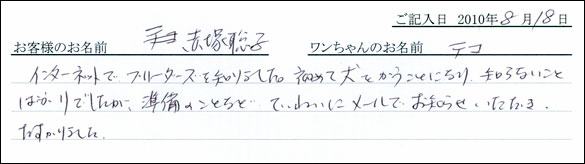 ご記入日 2010年8月18日
お客様のお名前 赤塚聡子 ワンちゃんのお名前 テコ
インターネットでブリーダーズを知りました。初めて犬をかうことになり、知らないこと
ばかりでしたが、準備のことなど、ていねいにメールでお知らせいただき、
たすかりました。